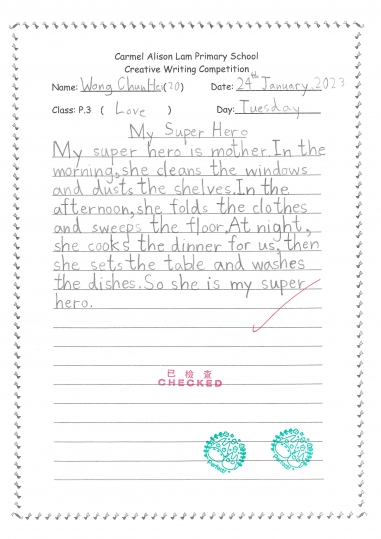 Carmel Alison Lam Primary School
Creative Writing Competition
Name: Wong Chun Hei(20) Date: 24th January, 2023
Class: P.3 ( Love ) Day: Tuesday
My Super Hero
My super hero is mother. In the
morning, she cleans the windows
and dusts the shelves. In the
afternoon, she folds the clothes
and sweeps the floor. At night,
she cooks the dinner for us, then
she sets the table and washes
the dishes. So she is my super
hero.
已檢查
CHECKED